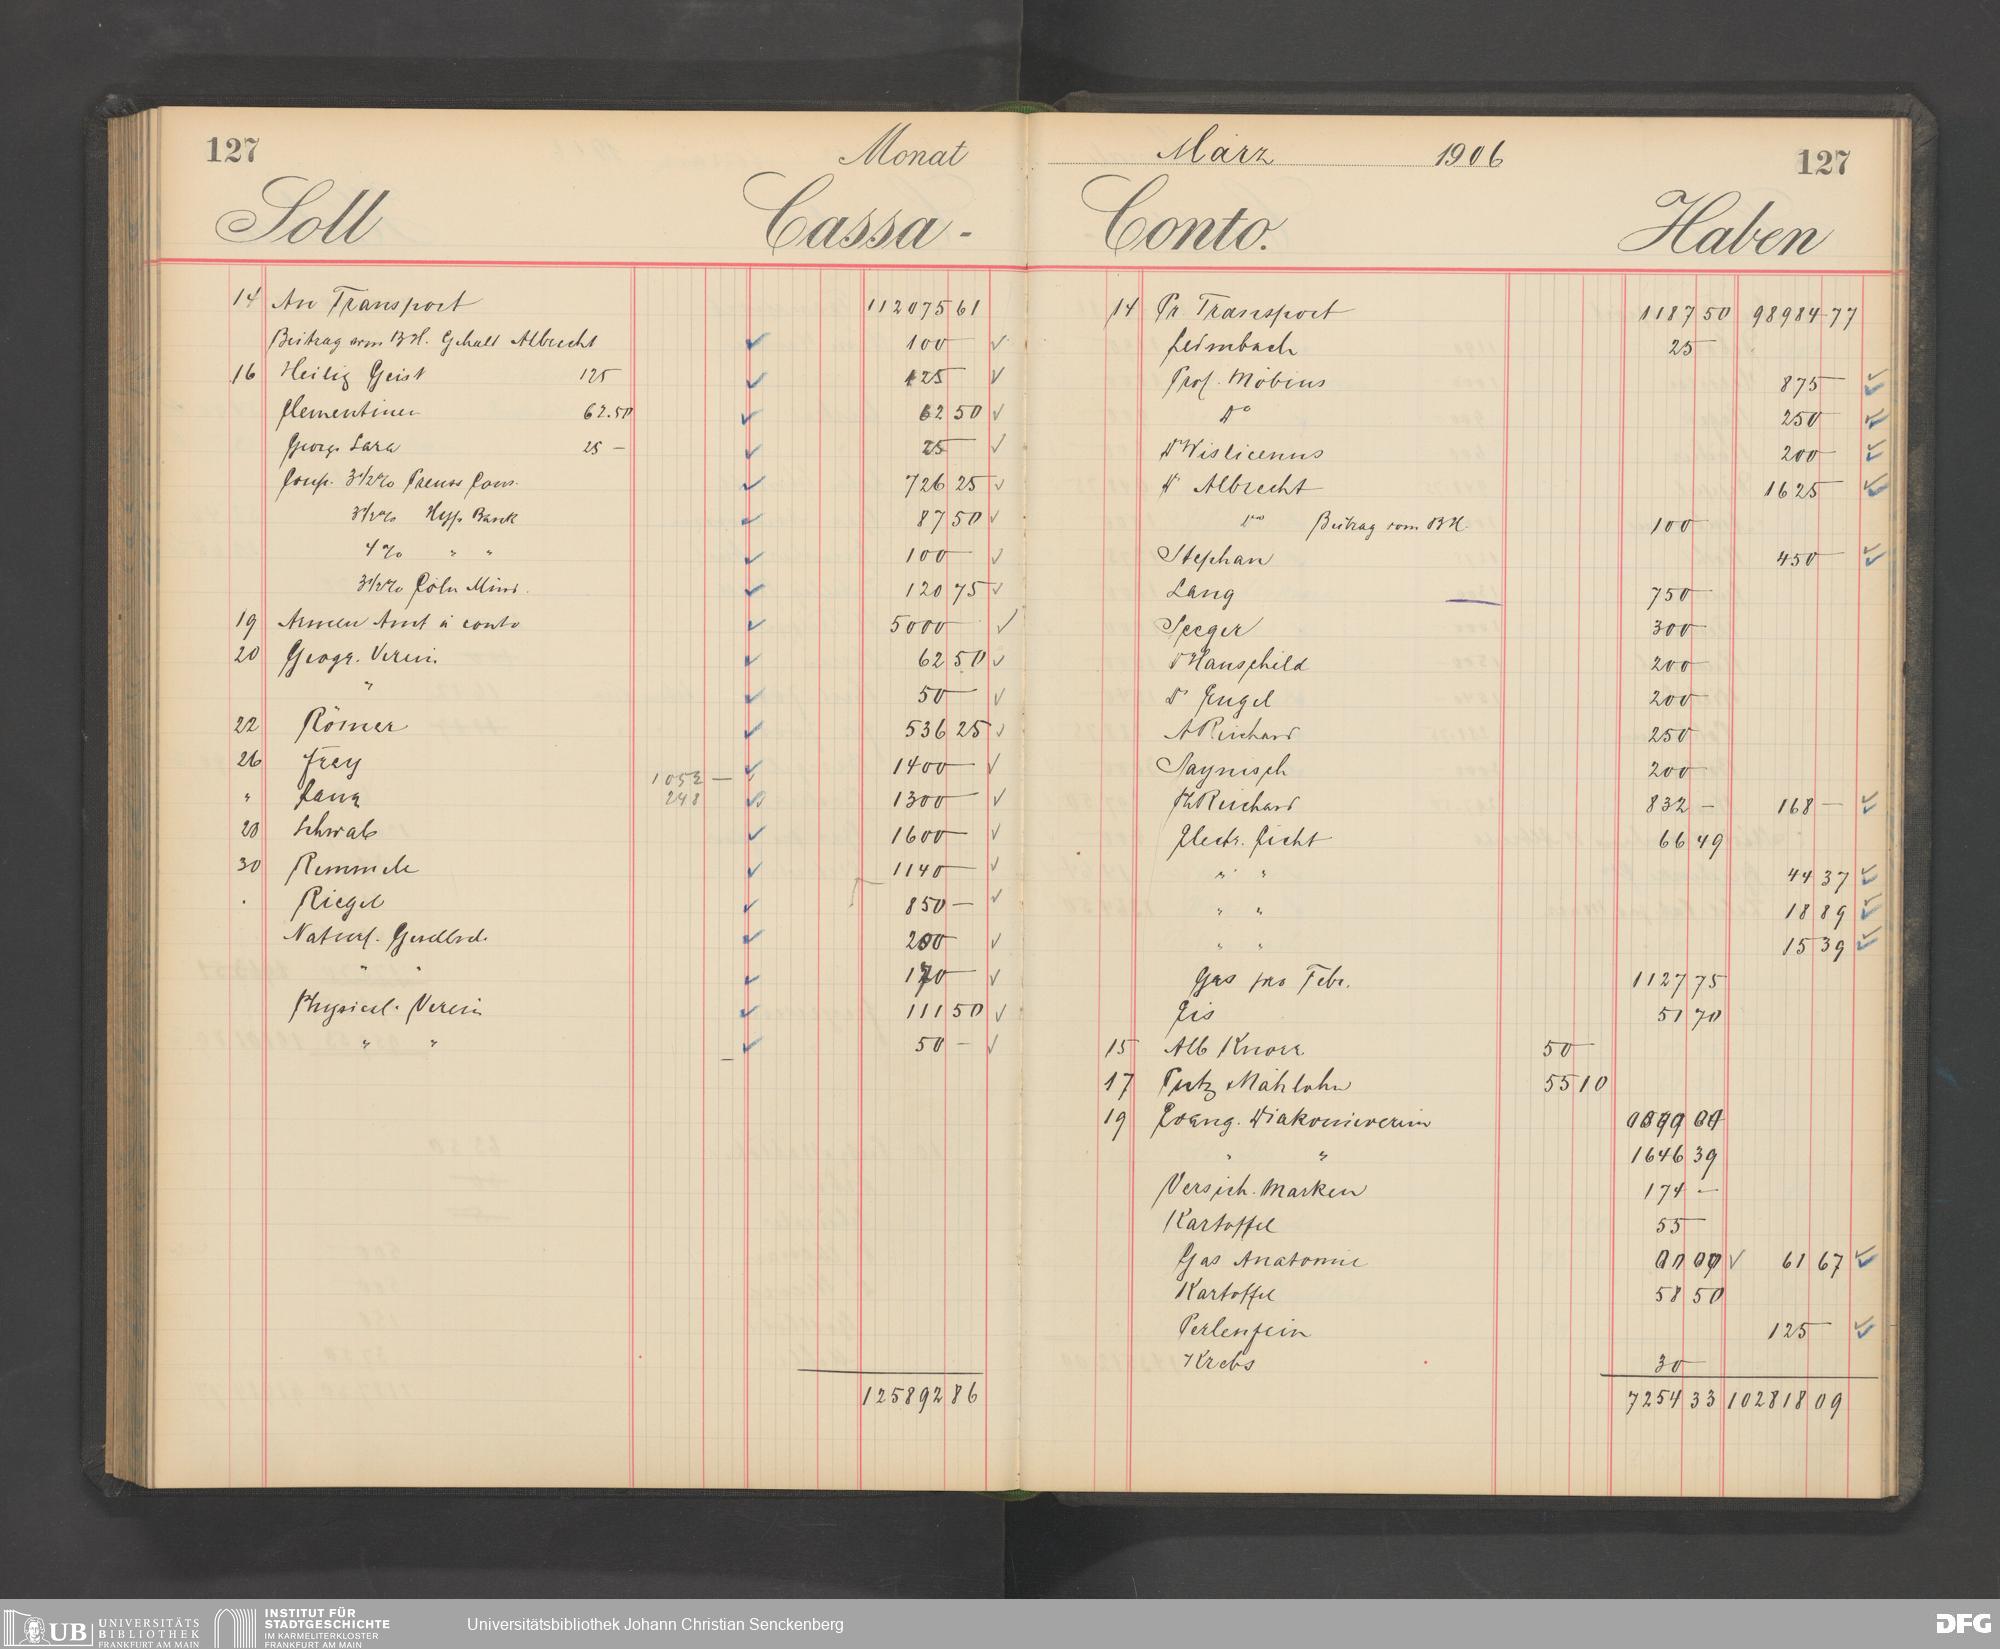 127
Monat
Soll
Cassa-
14 An Transport 112075 61
Beitrag vom BH. Gehalt Albrecht 100 —
16 Heilig Geist 125 125 —
Clementinen 62.50 62 50
Georg Lara 25 — 25 —
Coup. 3 1/2 % Preuss Cons. 726 25
3 1/2 % Hyp Bank 87 50
4 % " " 100 —
3 1/2 % Cöln Mind. 120 75
19 Armen Amt à conto 5000
20 Geogr. Verein 62 50
" 50 —
22 Römer 536 25
26 Frey 1052 — 1400 —
" Lang 248 1300 —
28 Schwab 1600 —
30 Remmele 1140 —
Riegel 850 —
Naturf. Gesellsch. 200
" " 170 —
Physical. Verein 111 50
" " 50 —
125892 86
März 1906
127
Conto.
Haben
14 Pr Transport 1187 50 98984 77
Leimbach 25 —
Prof. Möbius 875 —
do 250
Dr Wislicenus 200 —
Dr Albrecht 1625
do Beitrag vom BH. 100
Stephan 450 —
Lang 750
Seeger 300
Dr Hanschild 200
Dr Engel 200
A Reichard 250
Saynisch 200
Ph Reichard 832 — 168 —
Electr. Licht 66 49
" " 44 37
" " 18 89
" " 15 39
Gas pro Febr. 1127 75
Eis 51 70
15 Alb Knorr 50 —
17 Putz & Nählohn 55 10
19 Evang. Diakonieverein
" " 1646 39
Versich. Marken 174 —
Kartoffel 55
Gas Anatomie 61 67
Kartoffel 58 50
Perlenfein 125 —
Krebs 30 —
7254 33 102818 09
UB UNIVERSITÄTS
BIBLIOTHEK
FRANKFURT AM MAIN
INSTITUT FÜR
STADTGESCHICHTE
IM KARMELITERKLOSTER
FRANKFURT AM MAIN
Universitätsbibliothek Johann Christian Senckenberg
DFG